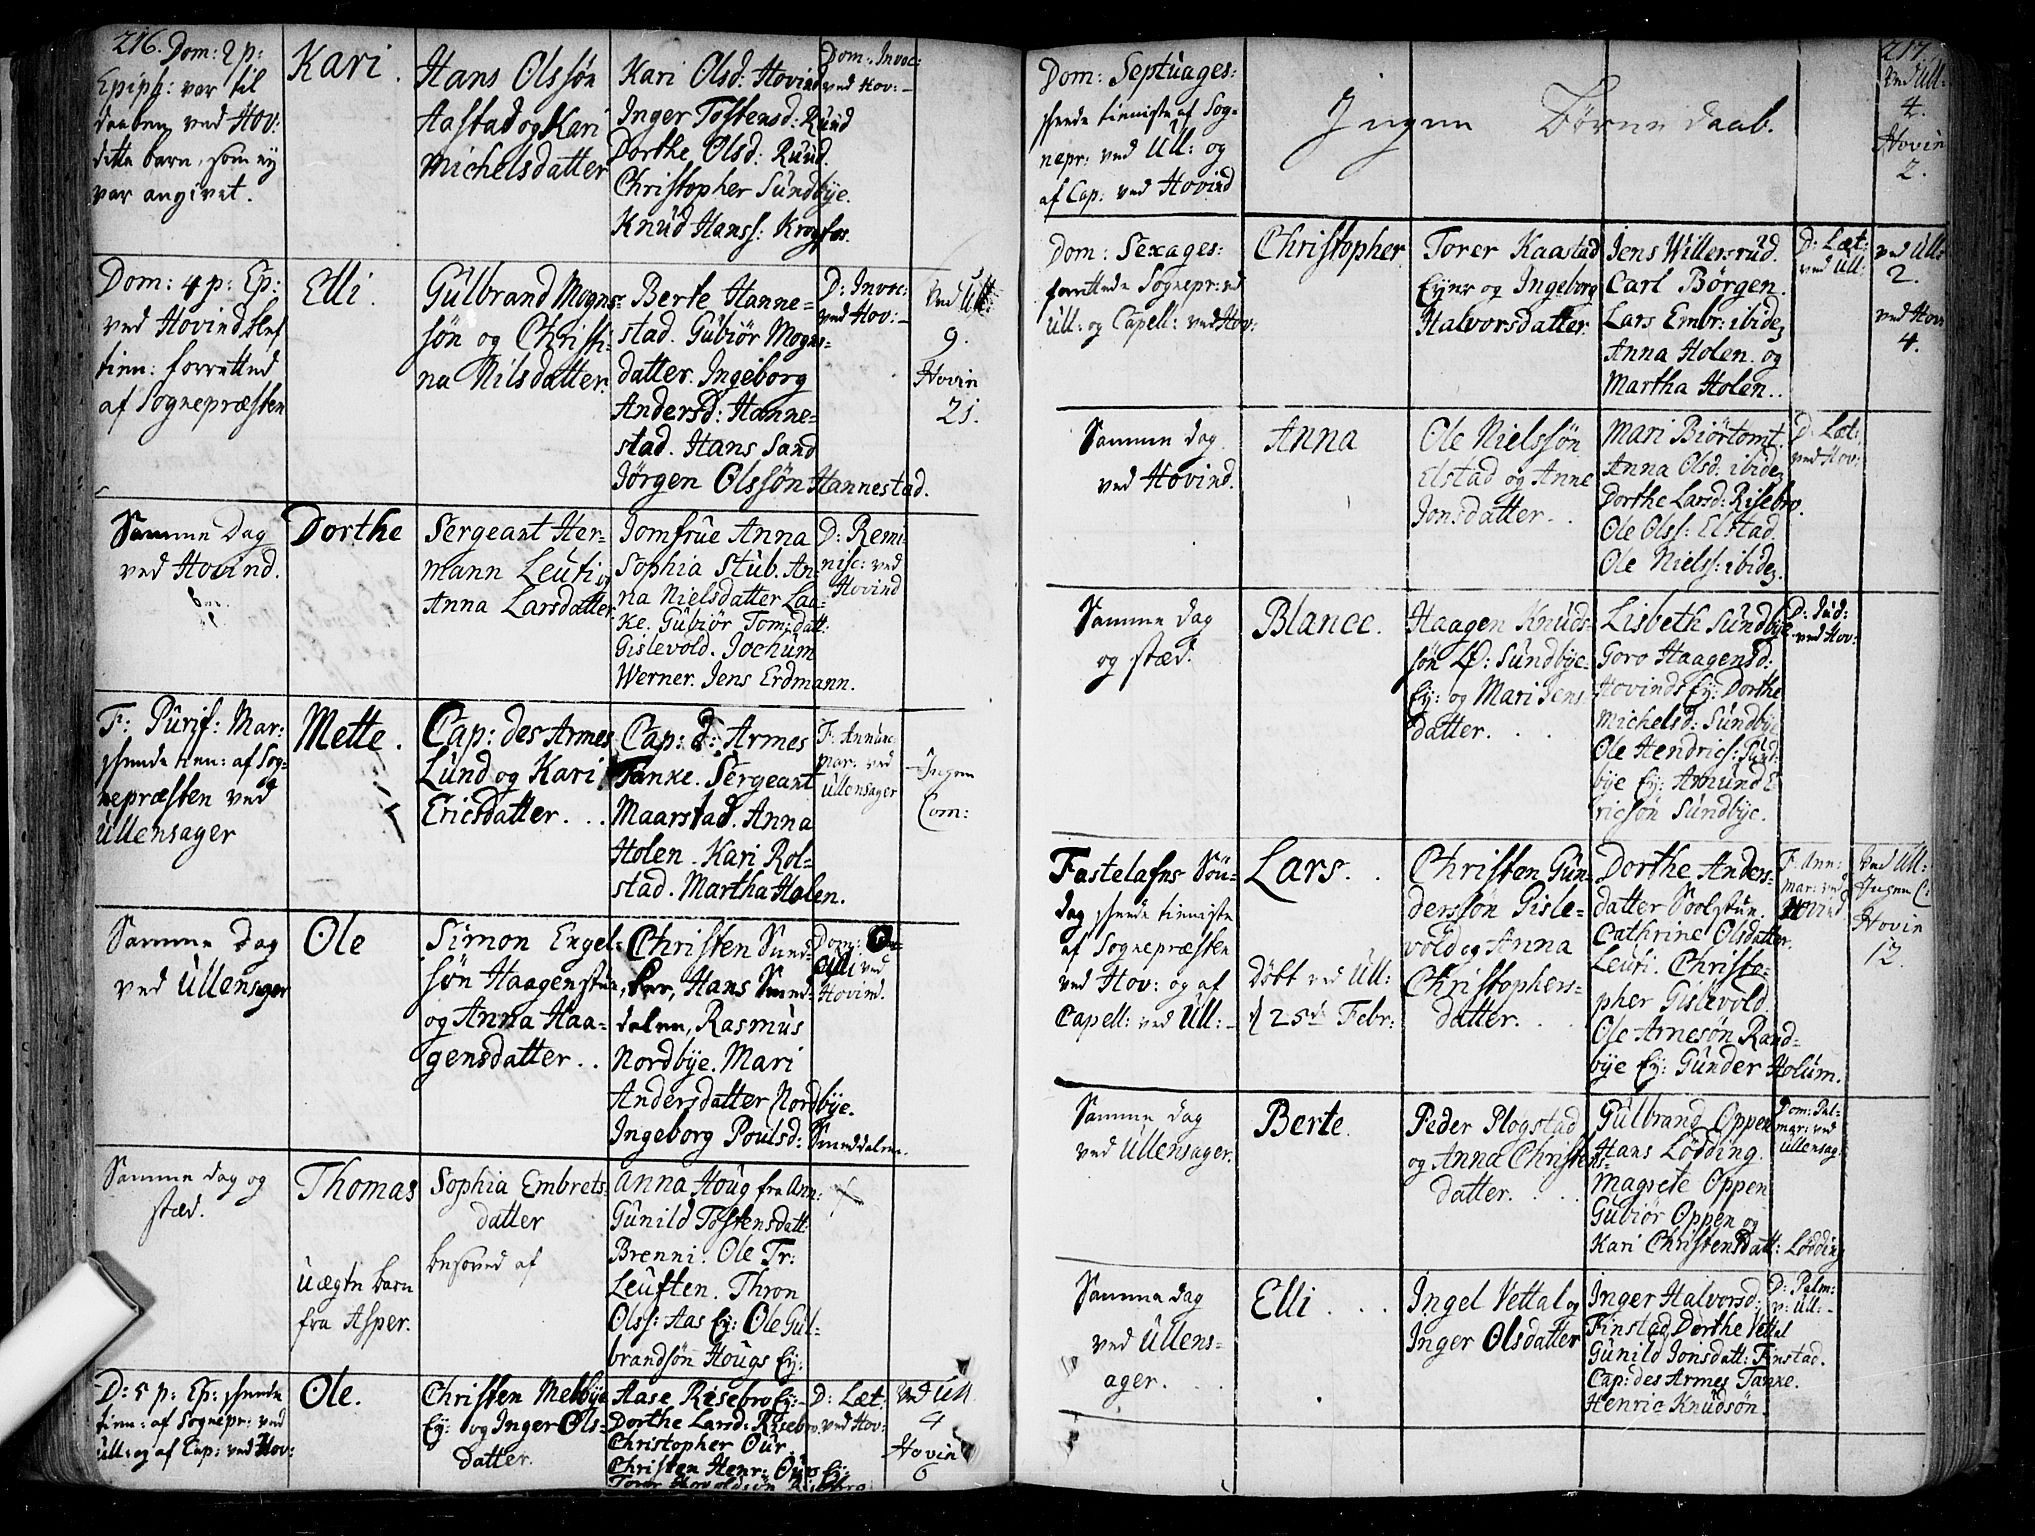 216. Dom: 2 p:
Epiph: var til
daaben ved Hov:
dette barn, som ey
var angivet.
Kari.
Hans Olssøn
Aastad og Kari
Michelsdatter
Kari Olsd: Hovind
Inger Tostensd: Ruud
Dorthe Olsd: Ruud.
Christopher Sundbye.
Knud Hanss: Krogfos.
Dom: Invoc:
ved Hov:
Dom: 4 p: Ep:
ved Hovind
tien: forretted
af Sognepræsten
Elli.
Gulbrand Mogns-
søn og Christi-
na Nilsdatter.
Berte Hanne-
stad. Gubiør Mogns-
datter. Ingeborg
Andersd: Hanne-
stad. Hans Sand
Jørgen Olssøn Hannestad.
D: Invoc:
ved Hov:
ved Ull:
9.
Hovin
21.
Samme Dag
ved Hovind.
Dorthe
Sergeant Her-
mann Leuti og
Anna Larsdatter
Jomfrue Anna
Sophia Stub. An-
na Nielsdatter Laa-
ke. Gubiør Tom: datt:
Gislevold. Jochum
Werner. Jens Erdmann.
D: Remi-
nisc: ved
Hovind
F: Purif: Mar:
tien: af Sog-
nepræsten ved
Ullensager
Mette.
Cap: des Armes
Lund og Kari
Ericsdatter. . .
Cap: d: Armes
Tanke. Sergeant
Maarstad. Anna
Holen. Kari Rol-
stad. Martha Holen.
F: Annunc:
mar: ved
Ullensager
Ingen
Com:
Samme Dag
ved Ullensager
Ole
Simon Engel-
søn Haagenstun
og Anna Haa-
gensdatter. .
Christen Sund-
Hans Smed-
dalen, Rasmus
Nordbye. Mari
Andersdatter Nordbye.
Ingeborg Poulsd: Smeddalen.
Dom:
ved
Hovind.
Samme dag og
stæd.
Thomas
Uægte barn
fra Asper.
Sophia Embrets-
datter
besoved af
Anna Houg fra
Gunild Tostensdatt:
Brenni. Ole Tr:
Leuften. Thron
Olss: Aas Ey: Ole Gul-
brandsøn Hougs Ey:
D: 5 p: Ep:
tien: af Sognepr: ved
Ull: og af Cap: ved Hov:
Ole.
Christen Melbye
Ey: og Inger Ols-
datter.
Aase Risebro Ey:
Dorthe Larsd: Risebro.
Christopher Our.
Christen Henr: Our Ey:
D: Læt:
ved Hov:
ved Ull
4
Hovin
6
217.
Dom: Septuages:
tienniste af Sog-
nepr: ved Ull: og
af Cap: ved Hovind
Ingen Børne daab.
ved Ull:
4.
Hovin
2.
Dom: Sexages:
forrettede Sognepr: ved
Ull: og Capell: ved Hov:
Christopher
Torer Kaastad
Eyer og Ingeborg
Halvorsdatter.
Jens Willersrud.
Carl Børgen.
Lars Embr: ibidem
Anna Holen. og
Martha Holen..
D: Læt:
ved Ull:
ved Ull:
2.
ved Hovi
4.
Samme dag
ved Hovind.
Anna
Ole Nielssøn
Elstad og Anne
Jonsdatter. .
Mari Biørtomt.
Anna Olsd: ibidem
Dorthe Larsd: Risebro.
Ole Olss: Elstad.
Ole Nielss: ibidem.
D: Læt:
ved Hov:
Samme dag
og stæd.
Blance.
Haagen Knuds-
søn Sundbye-
Ey: og Mari Jens
datter. . .
Lisbeth Sundbye
Goro Haagensd:
Hovinds Ey: Dorthe
Michelsd: Sundbye
Ole Hendrics: Sund-
bye Ey: Amund E-
ricsøn Sundbye.
D: Jud:
ved Hov:
Fastelafns Søn-
dag tienniste
af Sognepræsten
ved Hov: og af
Capell: ved Ull:
Lars. .
Døbt ved Ull:
d 25de Febr:
Christen Gun-
derssøn Gisle-
vold og Anna
Christophers-
datter. . .
Dorthe Anders-
datter Soolstun.
Cathrine Olsdatter.
Leuti. Christo-
pher Gislevold.
Ole Arnesøn Rand-
bye Ey: Gunder Holum.
F: Ann:
mar: ved
Hovind
ved Ull:
Ingen C:
Hovin
12.
Samme dag
ved Ullensager.
Berte.
Peder Plogstad
og Anna Christens-
datter. . .
Gulbrand Oppen
Hans Lødding.
Magrete Oppen
Gubiør Oppen og
Kari Christensdatt: Lødding
Dom: Pal-
mar: ved
Ullensag:
Samme dag
ved Ullens-
ager. . .
Elli . . .
Ingel Vettal og
Inger Olsdatter
Inger Halvorsd:
Finstad Dorthe Vettal
Gunild Jonsdatt: Finstad.
Cap: des Armes Tanke.
Henric Knudsøn.
D: Palm:
v: Ull: